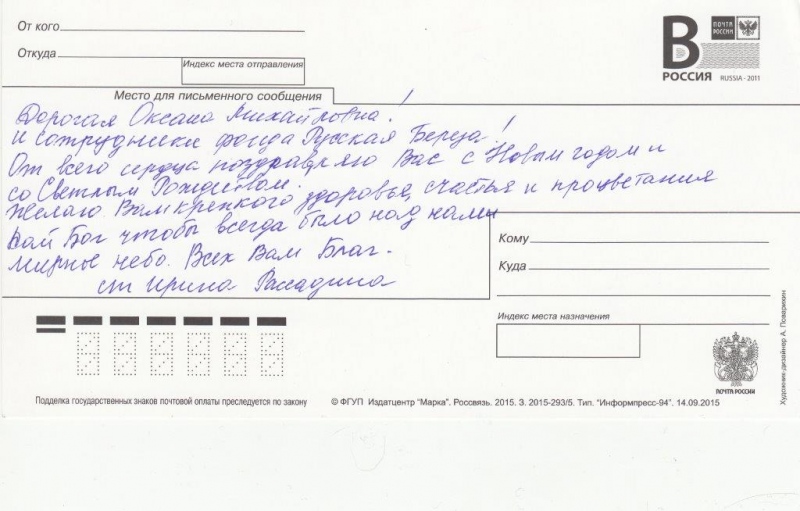 От кого
Откуда
Индекс места отправления
В
ПОЧТА РОССИИ
РОССИЯ RUSSIA - 2011
Место для письменного сообщения
Дорогая Оксана Михайловна!
и сотрудники фонда Русская Береза!
От всего сердца поздравляю Вас с Новым годом и
со Светлым Рождеством.
Желаю Вам крепкого здоровья, счастья и процветания
Дай Бог чтобы всегда было над нами
мирное небо. Всех Вам Благ.
Ирина Рассадина
Кому
Куда
Индекс места назначения
ПОЧТА РОССИИ
Художник-дизайнер А. Поварихин
Подделка государственных знаков почтовой оплаты преследуется по закону
© ФГУП Издатцентр "Марка". Россвязь. 2015. З. 2015-293/5. Тип. "Информпресс-94". 14.09.2015